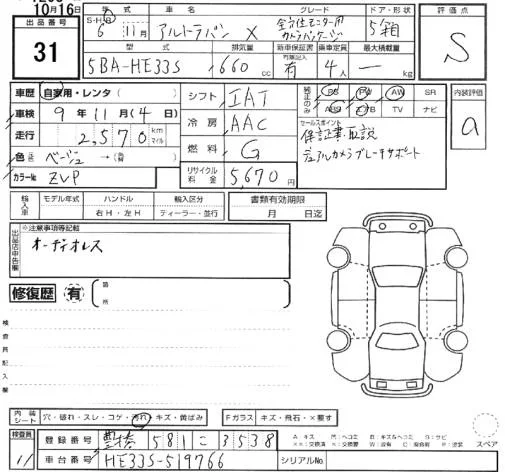 10月16日
出品番号
31
年式 車名 グレード ドア・形状 評価点
S・H・R
6 11月 アルトラパン X 全方位モニター用カメラパッケージ 5 箱 S
型式 排気量 新車保証書 乗車定員 最大積載量
5BA-HE33S 660 cc 有 4人 ー kg
車歴 自家用・レンタ
車検 9年11月(4日)
走行 2,570 km マイル
色 ベージュ→
カラーNo. ZVP
シフト IAT
冷房 AAC
燃料 G
リサイクル料金 5,670円
純正のみ PS PW AW SR
ABS エアB TV ナビ
セールスポイント
保証書・取説
デュアルカメラブレーキサポート
内装評価
a
輸入車 モデル年式 ハンドル 輸入区分 書類有効期限
右H・左H ディーラー・並行 月 日迄
出品店申告欄
※注意事項等記載
オーディオレス
修復歴 有 箇所
検査員記入欄
内装シート 穴・破れ・スレ・コゲ・汚れ・キズ・黄ばみ Fガラス キズ・飛石・×要す
検査員 11
登録番号 豊橋 581 こ 3538
車台番号 HE33S-519766 シリアルNo.
A キズ U ヘコミ B キズ&ヘコミ G サビ
スペア